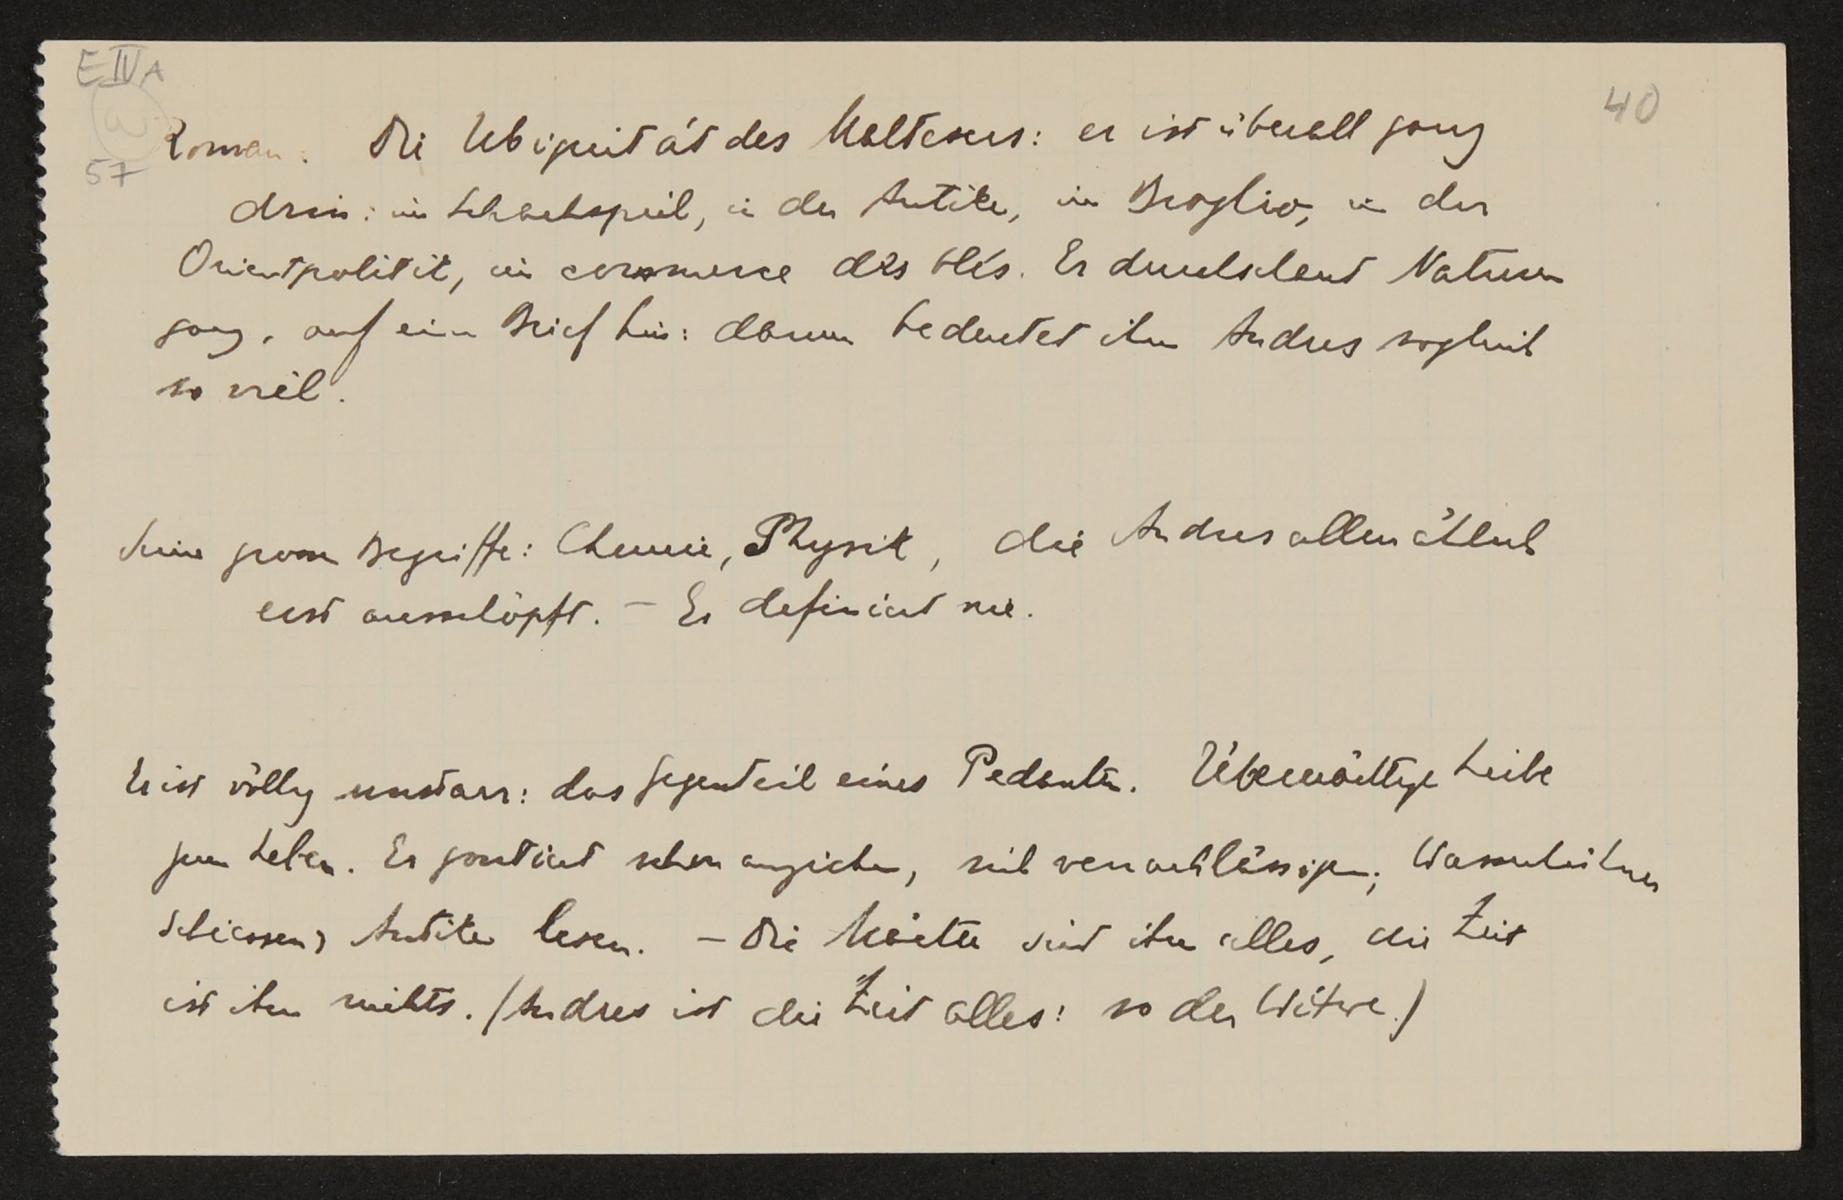 E IV A
40
57
Roman. Die Ubiquität des Maltesers: er ist überall ganz
drin: im Schachspiel, in der Antike, im Broglio, in der
Orientpolitik, im commerce des blés. Er durchschaut Naturen
ganz, auf einen Brief hin: darum bedeutet ihm Andres sogleich
so viel.
Seine grossen Begriffe: Chemie, Physik, die Andres allmählich
erst ausschöpft. – Er definiert nie.
Er ist völlig unstarr: das Gegenteil eines Pedanten. Überwältige Liebe
zum Leben. Er goutiert schon anziehen, sich vernachlässigen;
schiessen, Antike lesen. – Die sind ihm alles, die Zeit
ist ihm nichts. (Andres ist die Zeit alles: so der Witwe.)